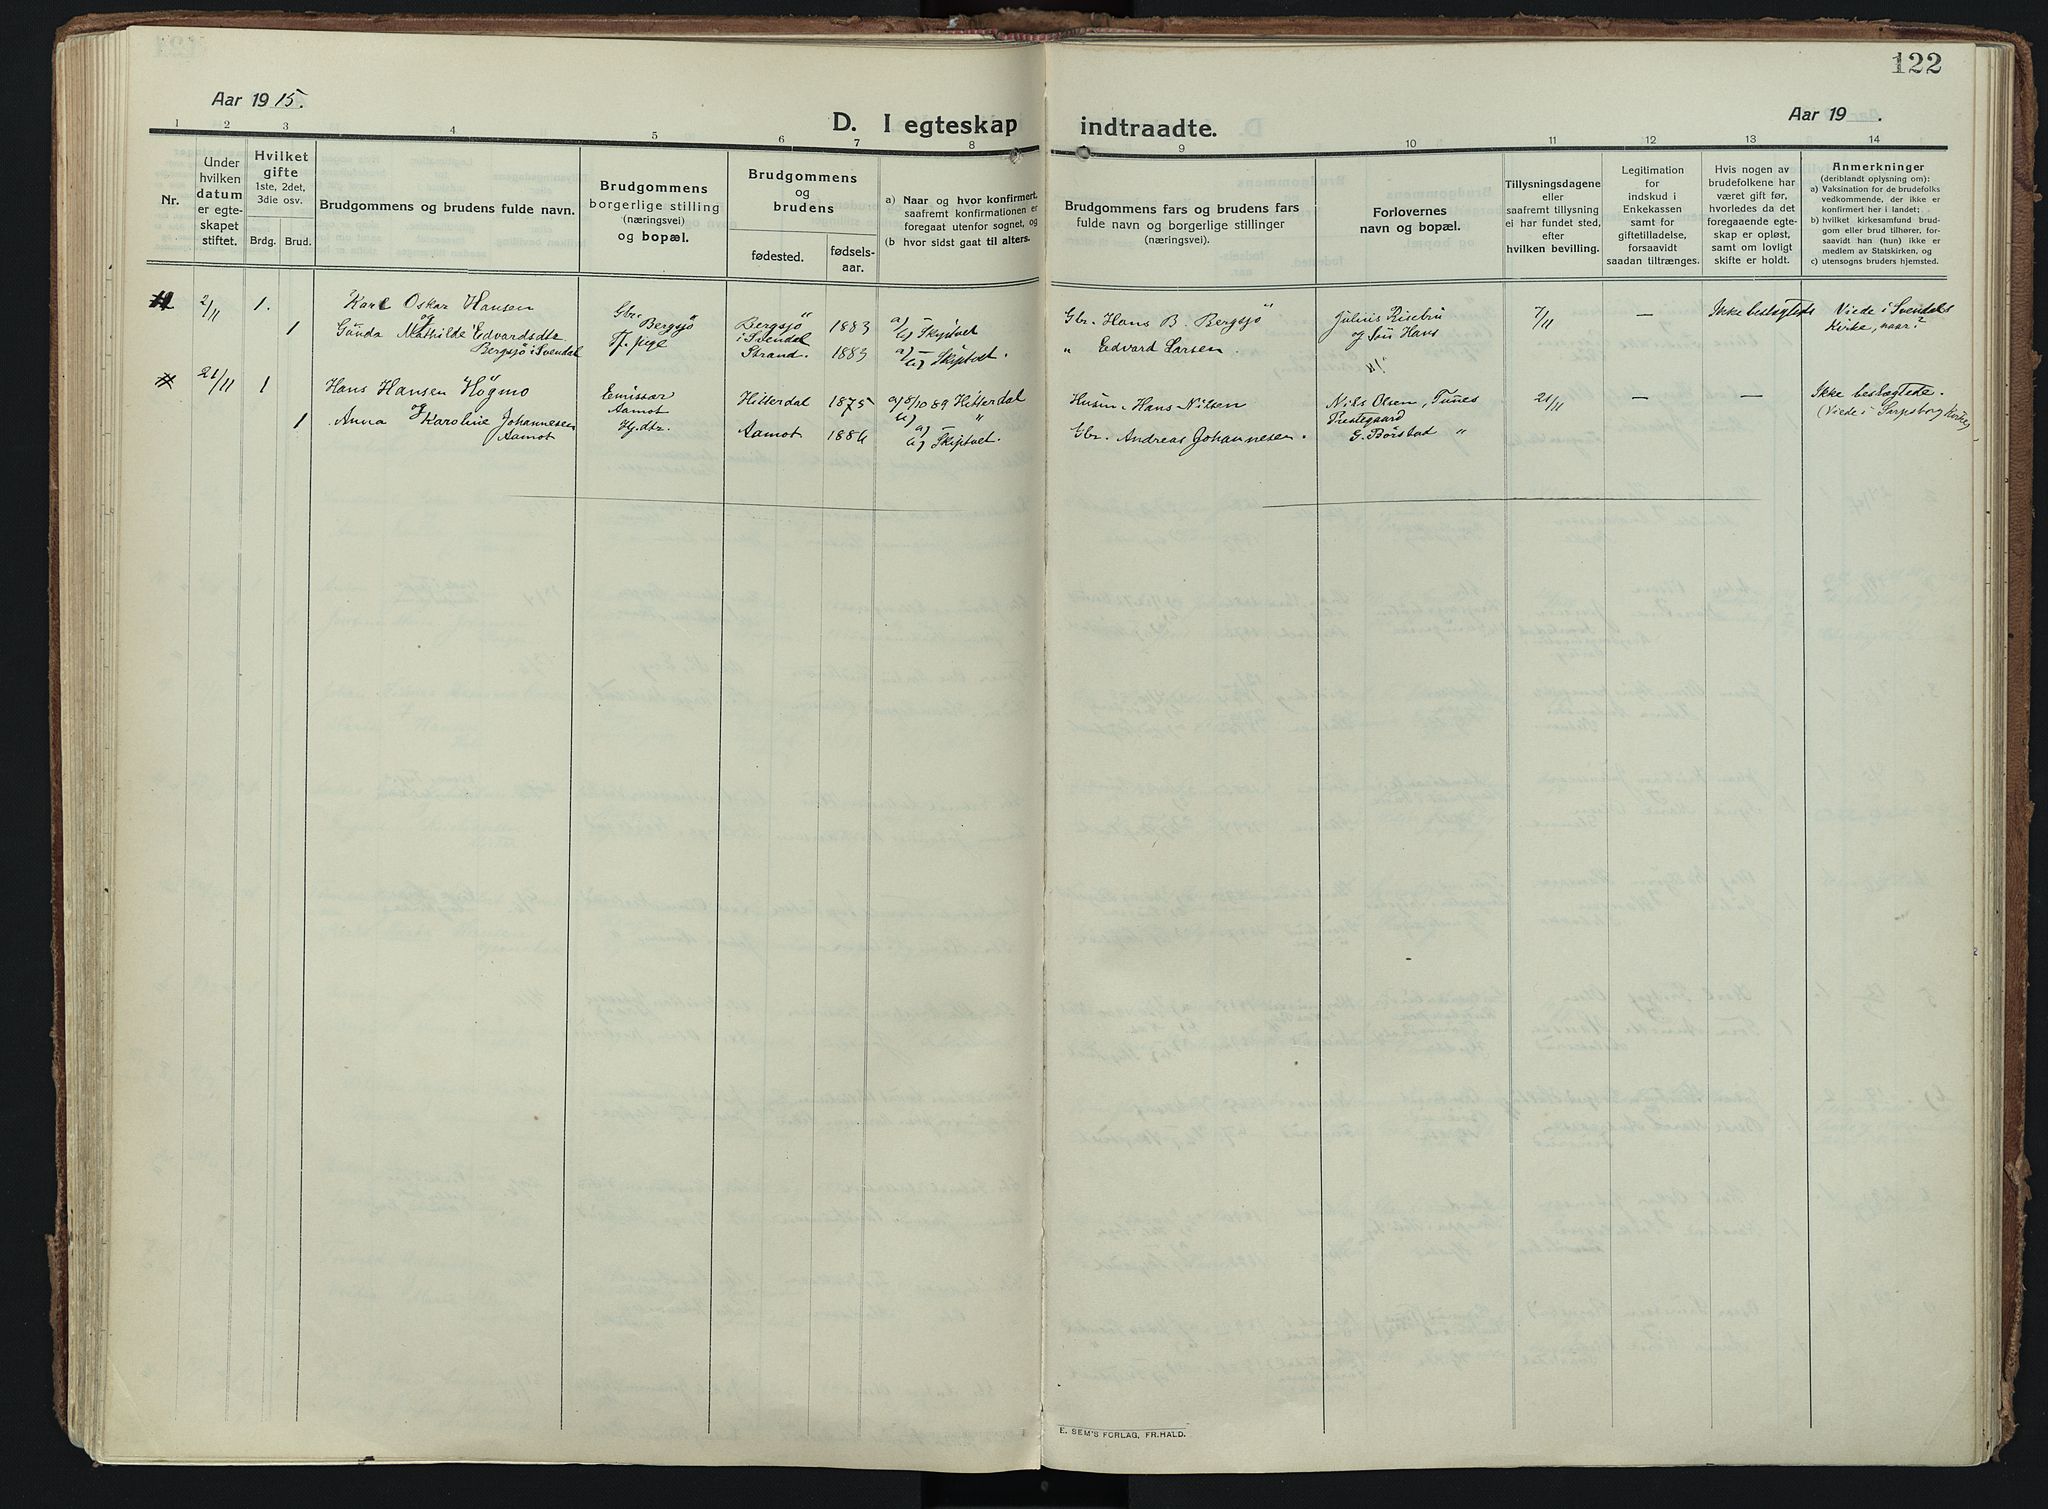 122
Aar 1915.
Aar 19 .
D. I egteskap indtraadte.
1 2 3 4 5 6 7 8 9 10 11 12 13 14
Nr.
Under
hvilken
datum
er egte-
skapet
stiftet.
Hvilket
gifte
1ste, 2det,
3die osv.
Brdg. Brud.
Brudgommens og brudens fulde navn.
Brudgommens
borgerlige stilling
(næringsvei)
og bopæl.
Brudgommens
og
brudens
fødested.
fødsels-
aar.
a) Naar og hvor konfirmert,
saafremt konfirmationen er
foregaat utenfor sognet, og
(b hvor sidst gaat til alters.
Brudgommens fars og brudens fars
fulde navn og borgerlige stillinger
(næringsvei).
Forlovernes
navn og bopæl.
Tillysningsdagene
eller
saafremt tillysning
ei har fundet sted,
efter
hvilken bevilling.
Legitimation
for
indskud i
Enkekassen
samt for
giftetilladelse,
forsaavidt
saadan tiltrænges.
Hvis nogen av
brudefolkene har
været gift før,
hvorledes da det
foregaaende egte-
skap er opløst,
samt om lovligt
skifte er holdt.
Anmerkninger
(deriblandt oplysning om):
a) Vaksination for de brudefolks
vedkommende, der ikke er
konfirmert her i landet;
b) hvilket kirkesamfund brud-
gom eller brud tilhører, for-
saavidt han (hun) ikke er
medlem av Statskirken, og
c) utensogns bruders hjemsted.
2/11 1. Karl Oskar Hansen Gbr. Bergsjö Bergsjö i Svendal 1883 a) b) Skiptvet Gbr. Hans B. Bergsjö Julius Risebru 7/11 — Ikke beslagtede Viede i Svendals
og og Søn Hans Kirke, naar?
1 Gunda Mathilde Edvardsdtr. Tj. pige Strand. 1883 a) b) Skiptvet. " Edvard Larsen.
Bergsjö i Svendal
21/11 1 Hans Hansen Högmo Emissær Hitterdal 1875 a) 8/10 89 Hitterdal Husm. Hans Nilsen Nils Olsen, Tunes 21/11 — — Ikke beslægtede.
og Aamot b) " Prestegaard (Viede i Sarpsborg Kirke)
1 Anna Karoline Johannesen Hj. dtr. Aamot 1886 a) b) Skiptvet. Gbr. Andreas Johannesen. G. Börstad "
Aamot
E. SEM'S FORLAG, FR.HALD.